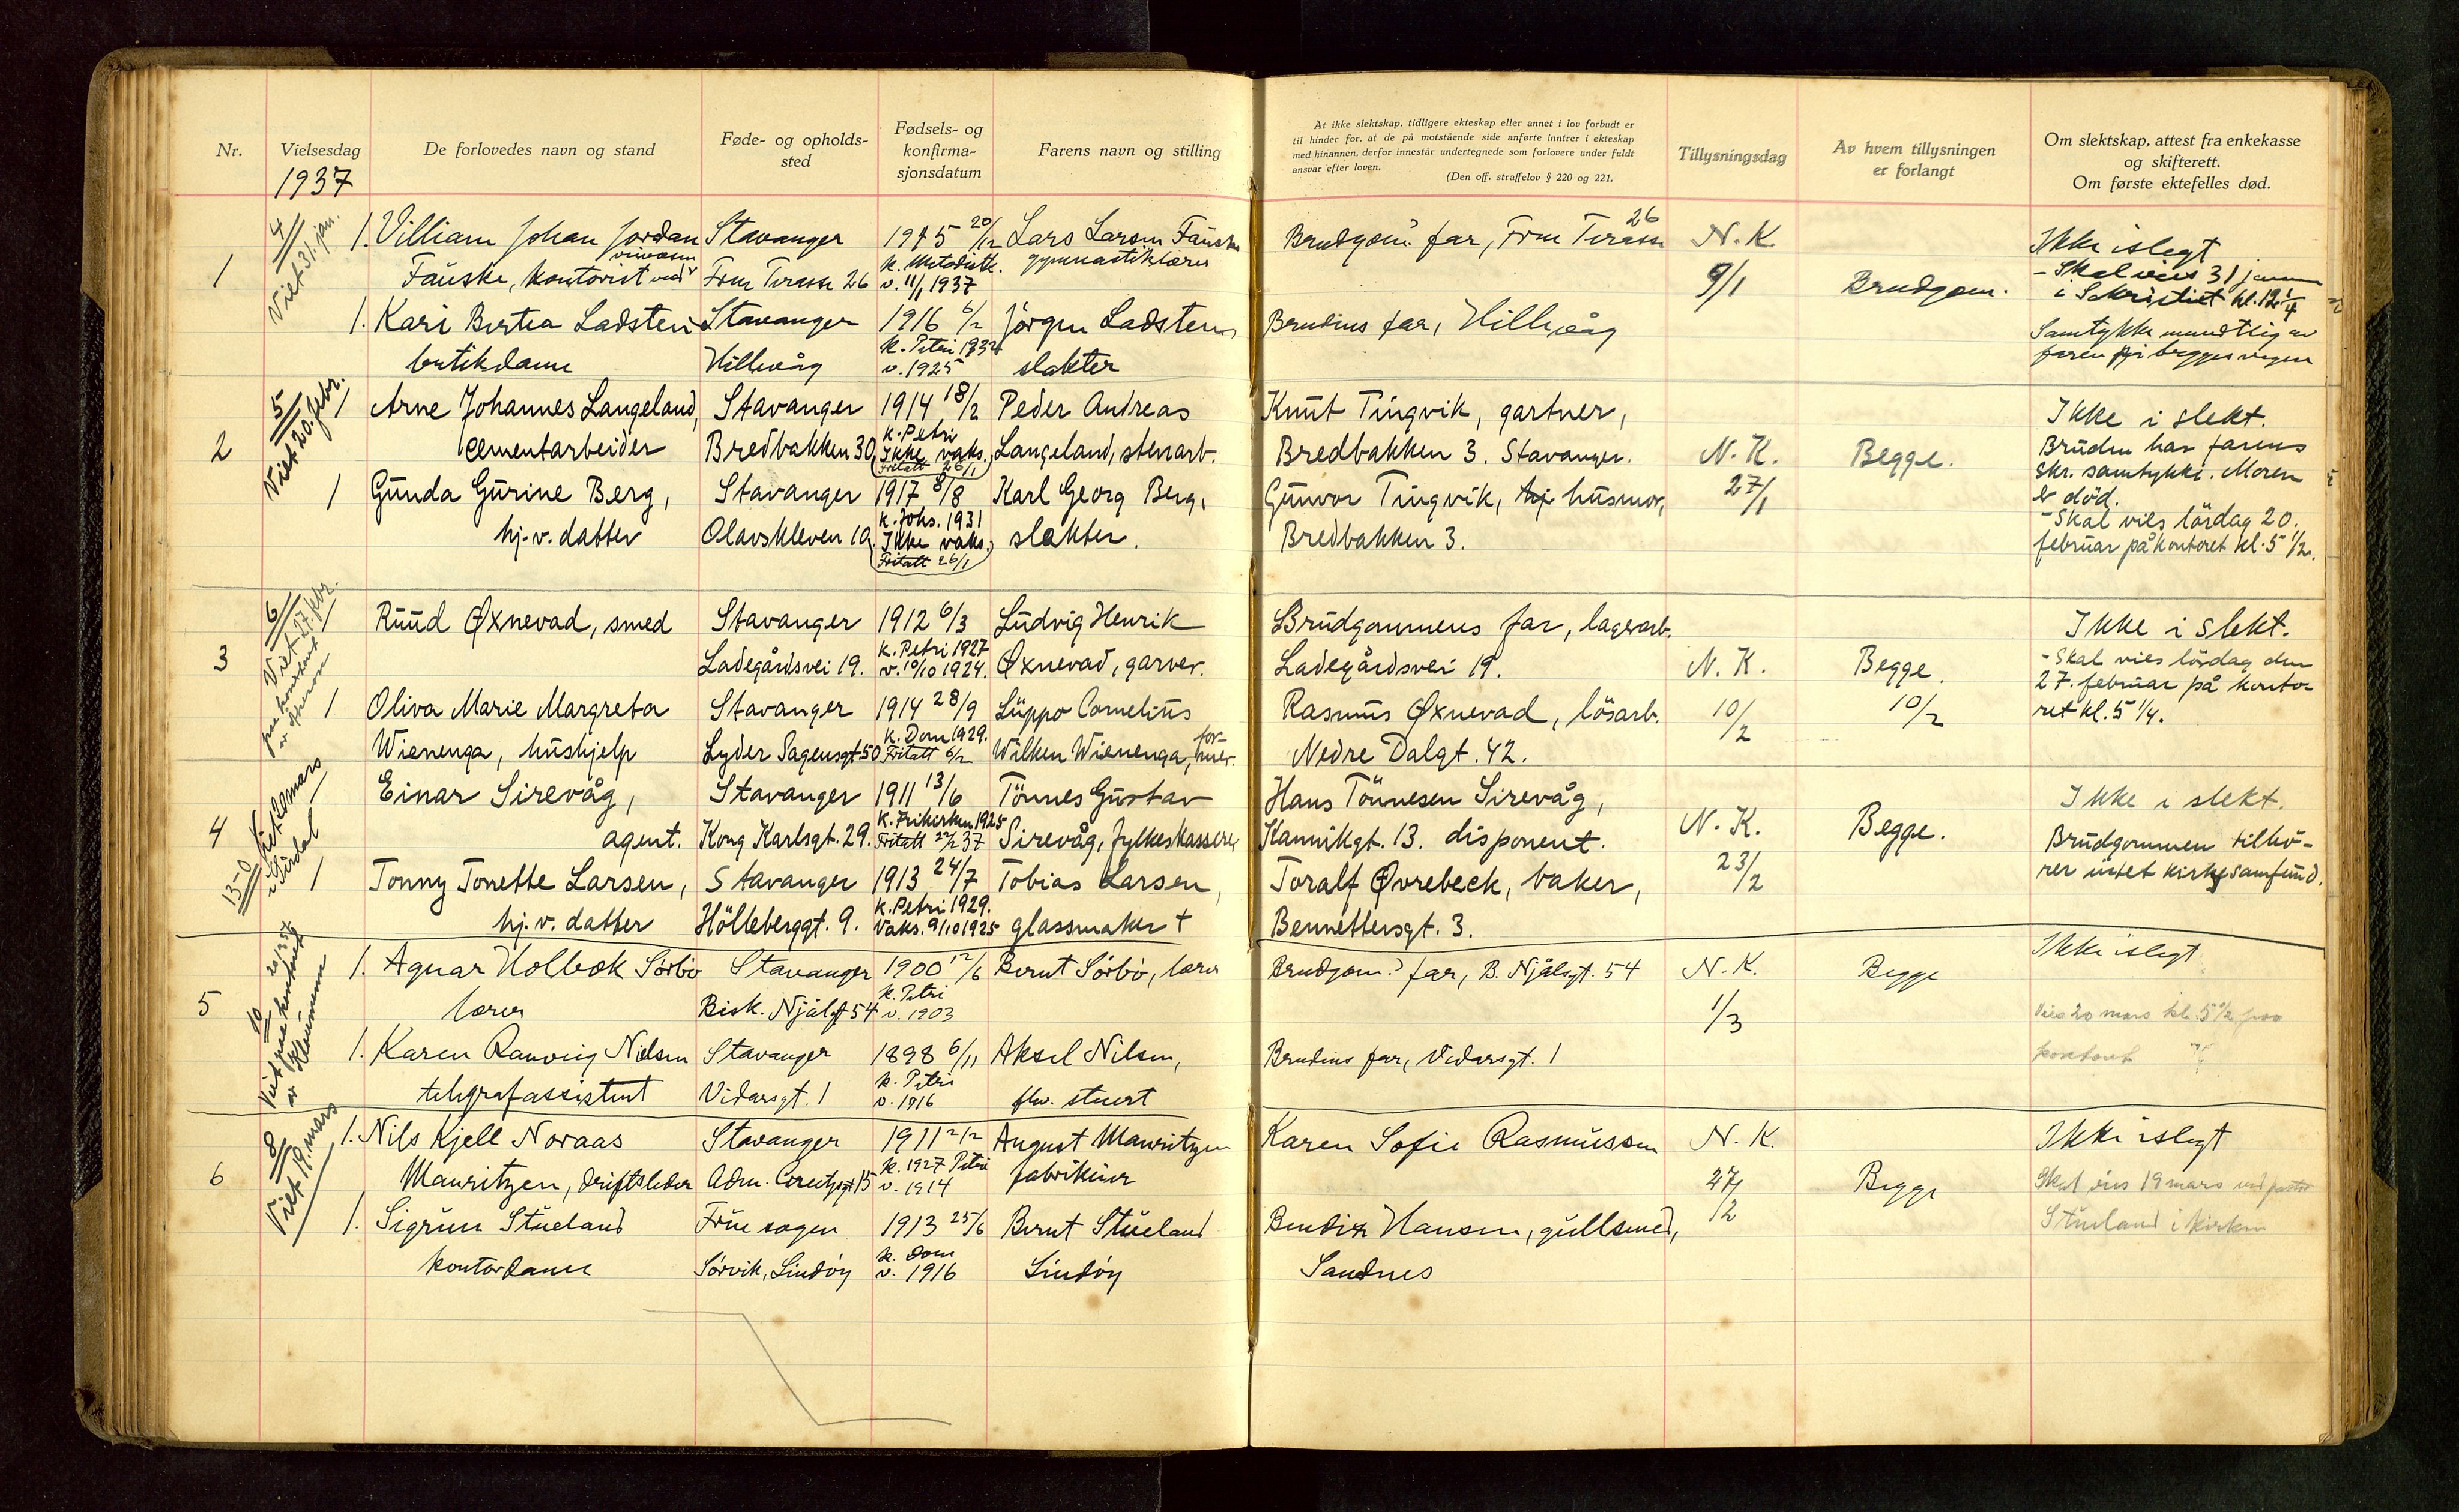 Nr.
Vielsesdag
1937
De forlovedes navn og stand
Føde- og opholds-
sted
Fødsels- og
konfirma-
sjonsdatum
Farens navn og stilling
At ikke slektskap, tidligere ekteskap eller annet i lov forbudt er
til hinder for, at de på motstående side anførte inntrer i ekteskap
med hinannen, derfor innestår undertegnede som forlovere under fuldt
ansvar efter loven.
(Den off. straffelov § 220 og 221.
Tillysningsdag
Av hvem tillysningen
er forlangt
Om slektskap, attest fra enkekasse
og skifterett.
Om første ektefelles død.
1
4
Viet 31. jan.
1. Villiam Johan Jordan
Fauske, kontorist ved
Stavanger
Frue Terasse 26
1915 20/12
k. Metodistk.
v. 11/1 1937
Lars Larsen Fauske
gymnastiklærer
Brudgom. far, Frue Terasse 26
N. K.
9/1
Brudgom.
Ikke islegt
- Skal vies 31 januar
i Sakristiet kl. 12 1/4
Samtykke mundtlig av
faren på begges vegne
1. Kari Bertea Ladstein
butikdame
Stavanger
Hillevåg
1916 6/2
k. Petri 1932
v. 1925
Jörgen Ladstein,
slakter
Brudens far, Hillevåg
2
5
Viet 20. febr.
1 Arne Johannes Langeland,
cementarbeider
Stavanger
Bredbakken 30
1914 18/2
k. Petri
Ikke vaks.
Fritatt 26/1
Peder Andreas
Langeland, stenarb.
Knut Tingvik, gartner,
Bredbakken 3. Stavanger.
N. K.
27/1
Begge.
Ikke i slekt.
Bruden har farens
skr. samtykke. Moren
er död.
- Skal vies lördag 20.
februar på kontoret kl. 5 1/2.
1 Gunda Gurine Berg,
hj. v. datter
Stavanger
Olavskleven 10.
1917 8/8
k. Johs. 1931
Ikke vaks.
Fritatt 26/1
Karl Georg Berg,
slakter.
Gunvor Tingvik, hj husmor,
Bredbakken 3.
3
6
Viet 27. febr.
paa kontoret
1 Ruud Øxnevad, smed
Stavanger
Ladegårdsvei 19.
1912 6/3
k. Petri 1927
v. 10/10 1924.
Ludvig Henrik
Øxnevad, garver.
Brudgommens far, lagerarb.
Ladegårdsvei 19.
N. K.
10/2
Begge.
10/2
Ikke i slekt.
- Skal vies lördag den
27. februar på konto
ret kl. 5 1/4.
1 Oliva Marie Margreta
Wienenga, hushjelp
Stavanger
Lyder Sagensgt. 50
1914 28/9
k. Dom 1929.
Fritatt 6/2
Lüppo Cornelius
Wilken Wienenga, for-
mer.
Rasmus Øxnevad, lösarb.
Nedre Dalgt. 42.
4
Einar Sirevåg,
agent.
Stavanger
Kong Karlsgt. 29.
1911 13/6
K. Frikirken 1925
Fritatt 22/2 37
Tönnes Gustav
Sirevåg, fylkeskasserer
Hans Tönnesen Sirevåg,
Kannikgt. 13. disponent.
N. K.
23/2
Begge.
Ikke i slekt.
Brudgommen tilhö-
rer intet kirkesamfund.
1 Tonny Tonette Larsen,
hj. v. datter
Stavanger
Hölleberggt. 9.
1913 24/7
k. Petri 1929.
Vaks. 9/10 1925
Tobias Larsen,
glassmaker +
Toralf Øvrebeck, baker,
Bennettersgt. 3.
5
10
1. Agnar Holbæk Sørbø
lærer
Stavanger
Bisk. Njålsgt 54
1900 12/6
k. Petri
v. 1903
Bernt Sörbö, lærer
Brudgom. far, B. Njålsgt. 54
N. K.
1/3
Begge
Ikke islegt
Vies 20 mars kl. 5 1/2 paa
kontoret
1. Karen Ranveig Nielsen
telegrafassistent
Stavanger
Vidarsgt. 1
1898 6/11
k. Petri
v. 1916
Aksel Nilsen,
fhv. stuert
Brudens far, Vidarsgt. 1
6
8
Viet 19. mars
1. Nils Kjell Noraas
Mauritzen, driftsleder
Stavanger
Adm. Cruysgt 15
1911 2/2
k. 1927 Petri
v. 1914
August Mauritzen
fabrikeier
Karen Sofie Rasmussen
N. K.
27/2
Begge
Ikke islegt
Skal vies 19 mars ved pastor
Stueland i kirken
1. Sigrun Stueland
kontordame
Frue sogn
Sørvik, Lindøy
1913 25/6
k. Dom
v. 1916
Bernt Stueland
Lindøy
Bendix Hansen, gullsmed,
Sandnes